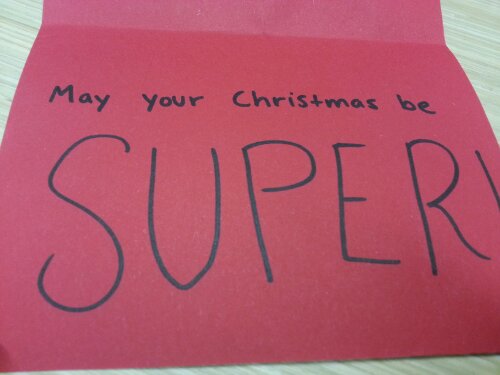 May your Christmas be
SUPER!